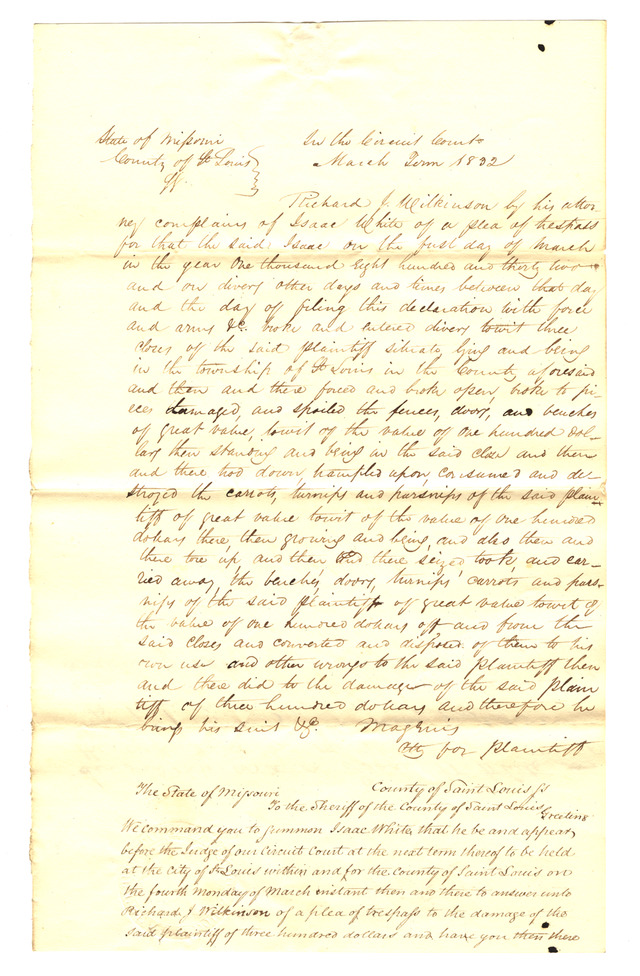 State of Missouri
County of St Louis
In the Circuit Court
March Term 1832
Richard J. Wilkinson by his attor-
ney complains of Isaac White of a plea of trespass
for that the said Isaac on the first day of March
in the year One thousand Eight hundred and thirty two
and on divers other days and times between that day
and the day of filing this declaration with force
and arms &c. broke and entered divers towit three
closes of the said plaintiff situate, lying and being
in the township of St Louis in the County aforesaid
and then and there forced and broke open, broke to pi-
eces damaged, and spoiled the fences, doors, and benches
of great value, towit of the value of one hundred dol-
lars then standing and being in the said close and then
and there trod down, trampled upon, consumed and de-
stroyed the carrots, turnips and parsnips of the said plain-
tiff of great value towit of the value of one hundred
dollars there then growing and being, and also then and
there tore up, and then and there seized took, and car-
ried away the benches, doors, turnips, carrots and pars-
nips of the said plaintiff of great value towit of
the value of one hundred dollars off and from the
said closes and converted and disposed of them to his
own use and other wrongs to the said plaintiff then
and there did to the damage of the said plain
tiff of three hundred dollars and therefore he
brings his suit &c. Magenis
Atty for plaintiff
The State of Missouri County of Saint Louis ss
To the Sheriff of the County of Saint Louis Greeting
We command you to summon Isaac White that he be and appear,
before the Judge of our Circuit Court at the next term thereof to be held
at the City of St Louis within and for the County of Saint Louis on
the fourth Monday of March instant then and there to answer unto
Richard J. Wilkinson of a plea of trespass to the damage of the
said plaintiff of three hundred dollars and have you then there